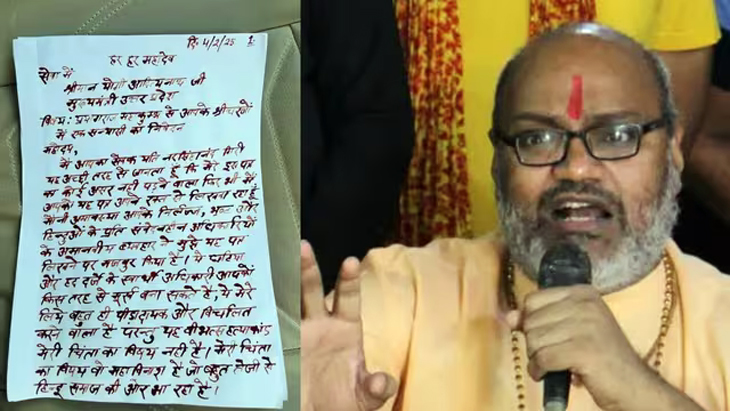 दि. 4/2/25 1.
हर हर महादेव
सेवा में
श्रीमान योगी आदित्यनाथ जी
मुख्यमंत्री उत्तर प्रदेश
विषय: प्रयागराज महाकुम्भ से आपके श्रीचरणों
में एक सन्यासी का निवेदन
महोदय,
मैं आपका सेवक यति नरसिंहानंद गिरी
यह अच्छी तरह से जानता हूँ कि मेरे इस पत्र
का कोई असर नहीं पड़ने वाला फिर भी मैं
आपको यह पत्र अपने रक्त से लिख रहा हूँ
मौनी अमावस्या आपके निर्लज्ज, भ्रष्ट और
हिन्दुओं के प्रति संवेदनहीन अधिकारियों
के अमानवीय व्यवहार ने मुझे यह पत्र
लिखने पर मजबूर किया है। ये घटिया
और हद दर्जे के स्वार्थी अधिकारी आपको
किस तरह से मूर्ख बना सकते हैं, ये मेरे
लिये बहुत ही पीडादायक और विचलित
करने वाला है परन्तु यह वीभत्स हत्याकांड
मेरी चिंता का विषय नहीं है। मेरी चिंता
का विषय वो महाविनाश है जो बहुत तेजी से
हिन्दू समाज की ओर आ रहा है।